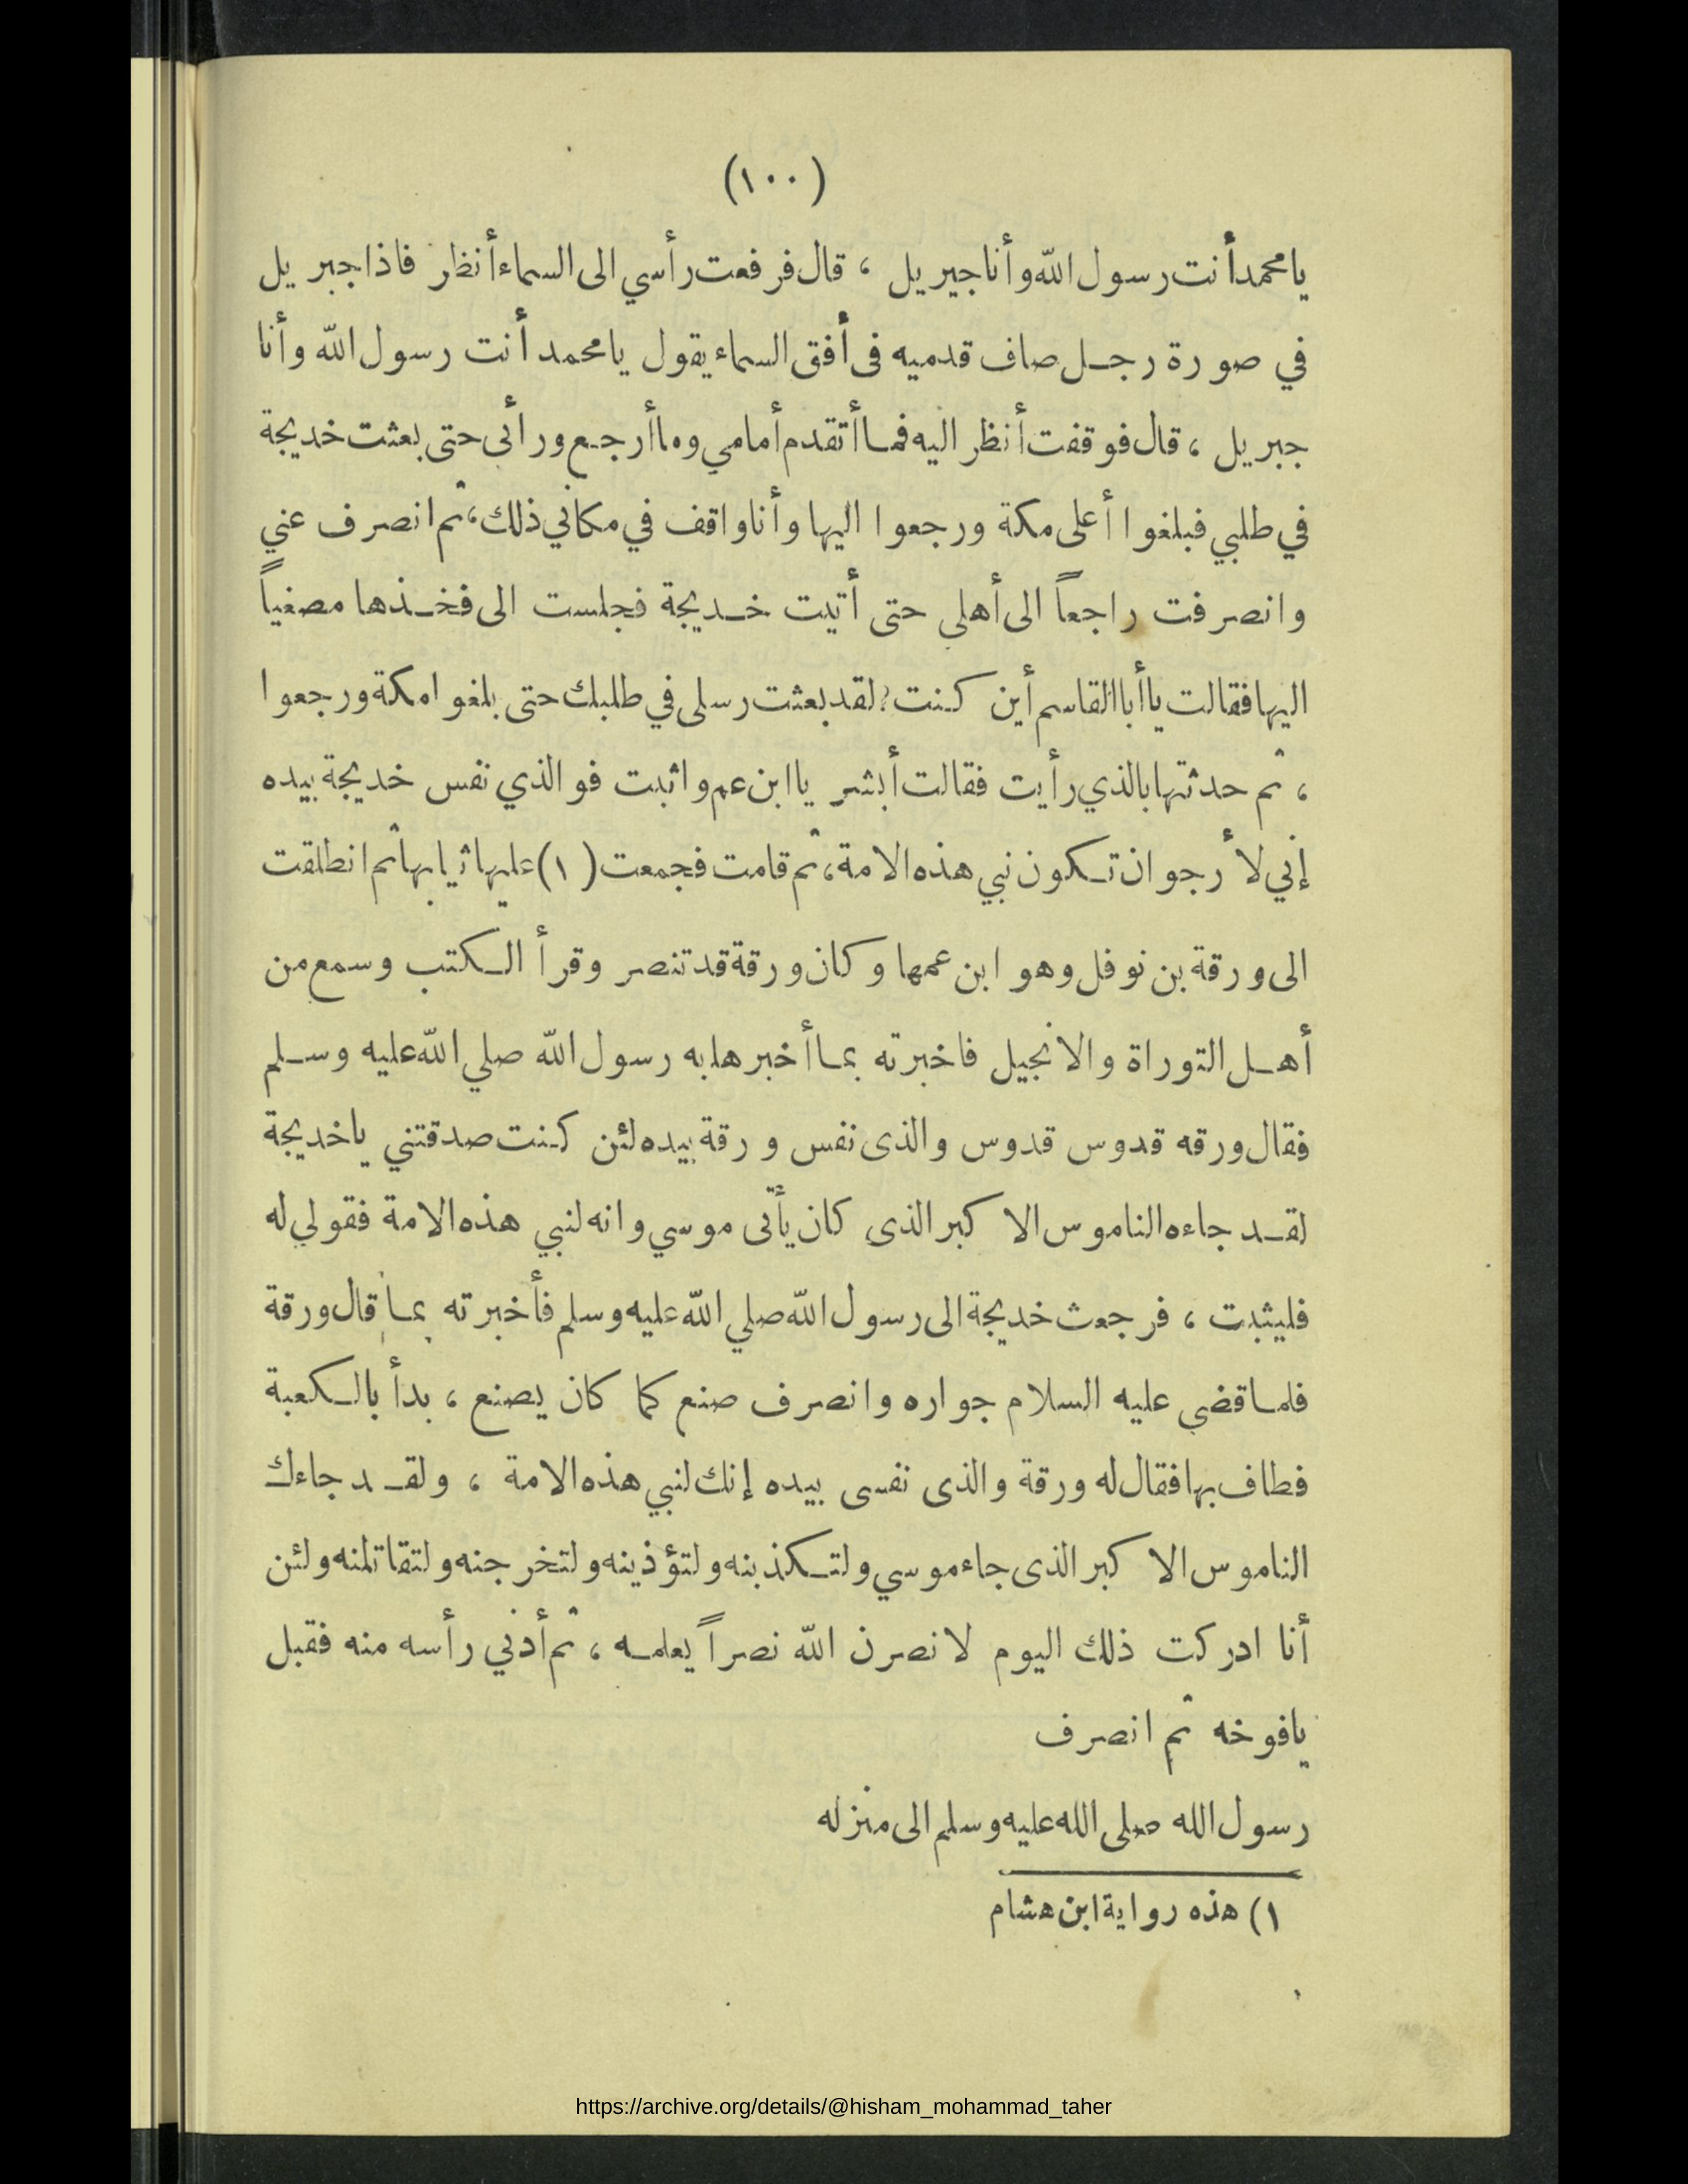 (١٠٠)
يا محمد أنت رسول الله وأنا جبريل ، قال فرفعت رأسي الى السماء أنظر فاذا جبريل
في صورة رجل صاف قدميه فى أفق السماء يقول يا محمد أنت رسول الله وأنا
جبريل ، قال فوقفت أنظر اليه فما أتقدم أمامي وما أرجع ورائى حتى بعثت خديجة
في طلبي فبلغوا أعلى مكة ورجعوا اليها وأنا واقف في مكاني ذلك ، ثم انصرف عني
وانصرفت راجعاً الى أهلي حتى أتيت خديجة فجلست الى فخذها مصغياً
اليها فقالت يا أبا القاسم أين كنت ؟ لقد بعثت رسلى في طلبك حتى بلغوا مكة ورجعوا
، ثم حدثتها بالذي رأيت فقالت أبشر يا ابن عم واثبت فوالذي نفس خديجة بيده
إني لأرجو ان تكون نبي هذه الامة ، ثم قامت فجمعت (١) عليها ثيابها ثم انطلقت
الى ورقة بن نوفل وهو ابن عمها وكان ورقة قد تنصر وقرأ الكتب وسمع من
أهل التوراة والانجيل فاخبرته بما أخبرها به رسول الله صلي الله عليه وسلم
فقال ورقه قدوس قدوس والذى نفس ورقة بيده لئن كنت صدقتني ياخديجة
لقد جاءه الناموس الاكبر الذى كان يأتى موسي وانه لنبي هذه الامة فقولي له
فليثبت ، فرجعت خديجة الى رسول الله صلي الله عليه وسلم فأخبرته بما قال ورقة
فلما قضى عليه السلام جواره وانصرف صنع كما كان يصنع ، بدأ بالكعبة
فطاف بها فقال له ورقة والذى نفسى بيده إنك لنبي هذه الامة ، ولقد جاءك
الناموس الاكبر الذى جاء موسي ولتكذبنه ولتؤذينه ولتخرجنه ولتقاتلنه ولئن
أنا ادركت ذلك اليوم لانصرن الله نصراً يعلمه ، ثم أدني رأسه منه فقبل
يافوخه ثم انصرف
رسول الله صلى الله عليه وسلم الى منزله
١) هذه رواية ابن هشام
https://archive.org/details/@hisham_mohammad_taher